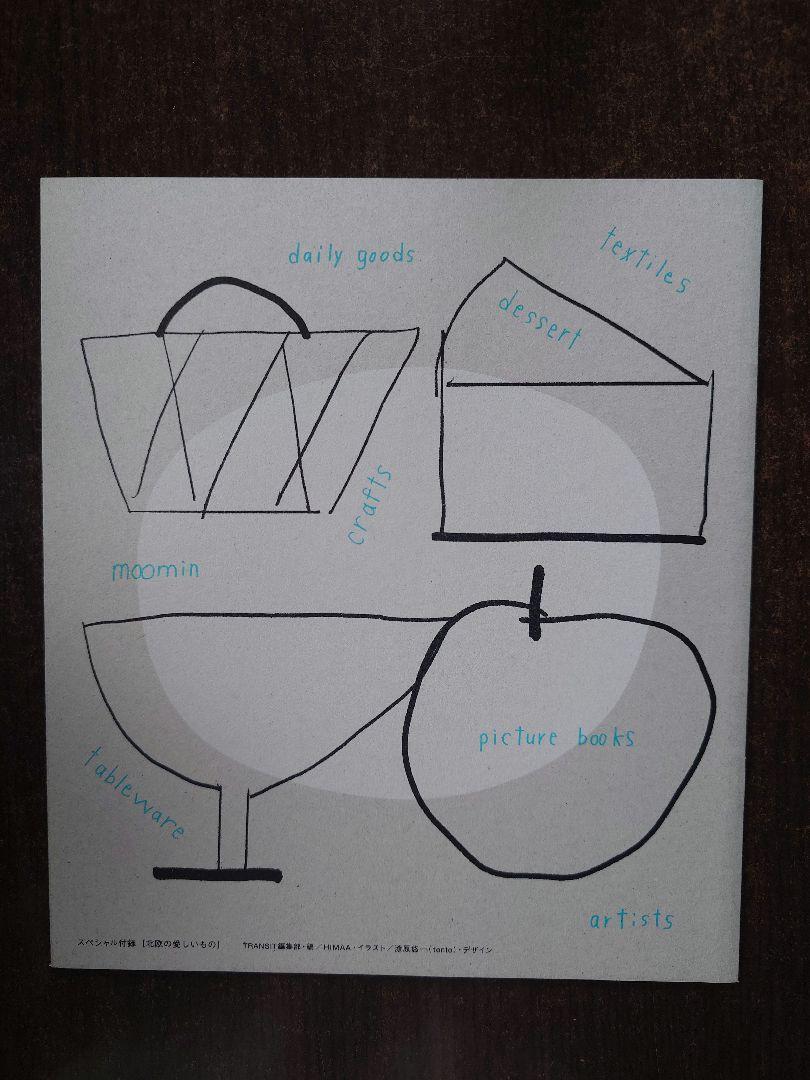 daily goods
textiles
dessert
crafts
moomin
picture books
tableware
artists
スペシャル付録 [北欧の愛しいもの] TRANSIT編集部・編／HIMAA・イラスト／漆原悠一(tento)・デザイン